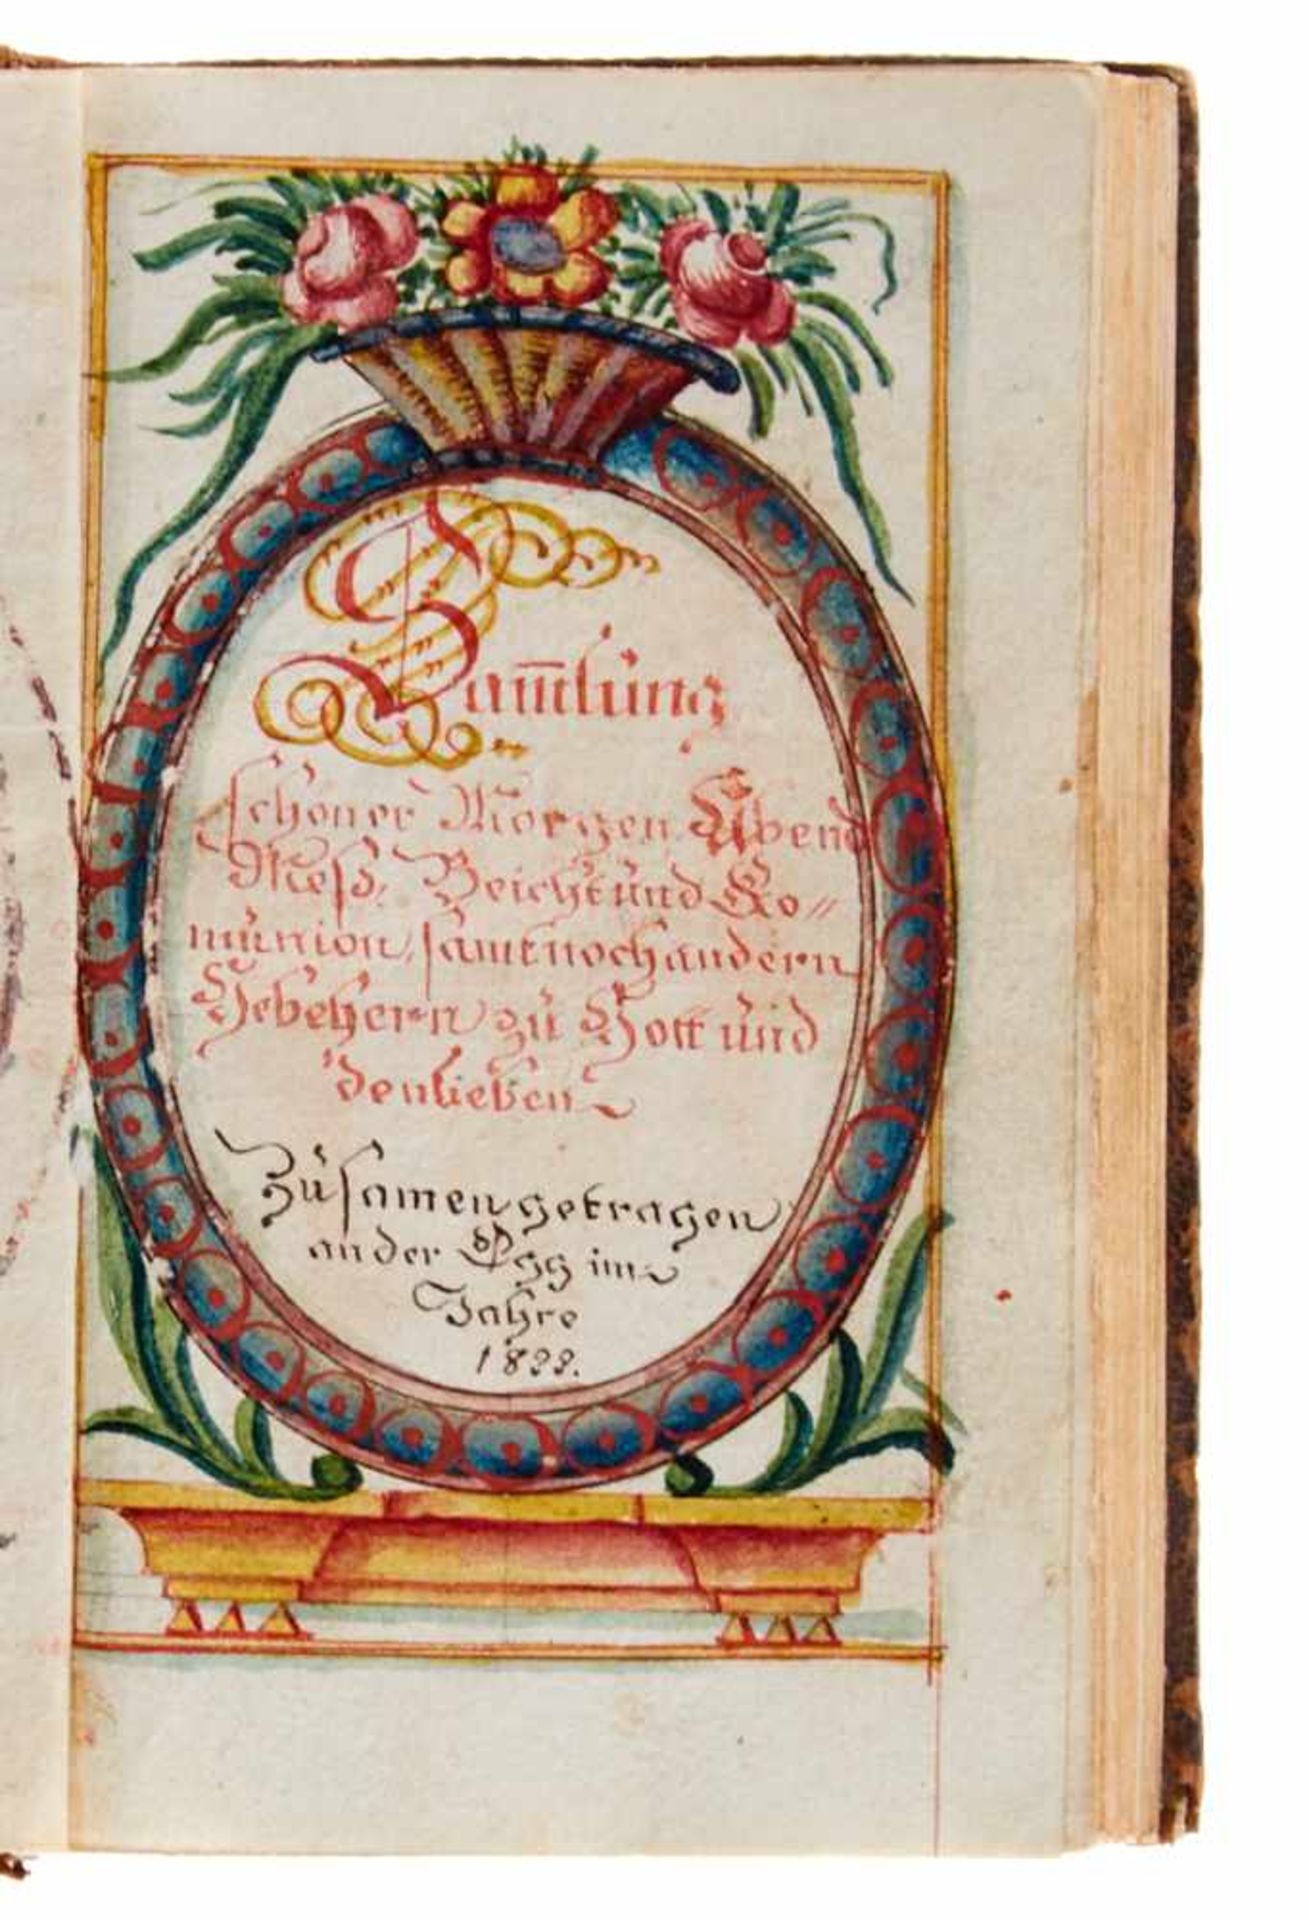 Sam̅lung
schöner Morgen Abend
Meß, Beicht und Ko„
munion, samt noch andern
Gebethern zu Gott und
den lieben
Zusamen getragen
an der Egg im
Jahre
1833.